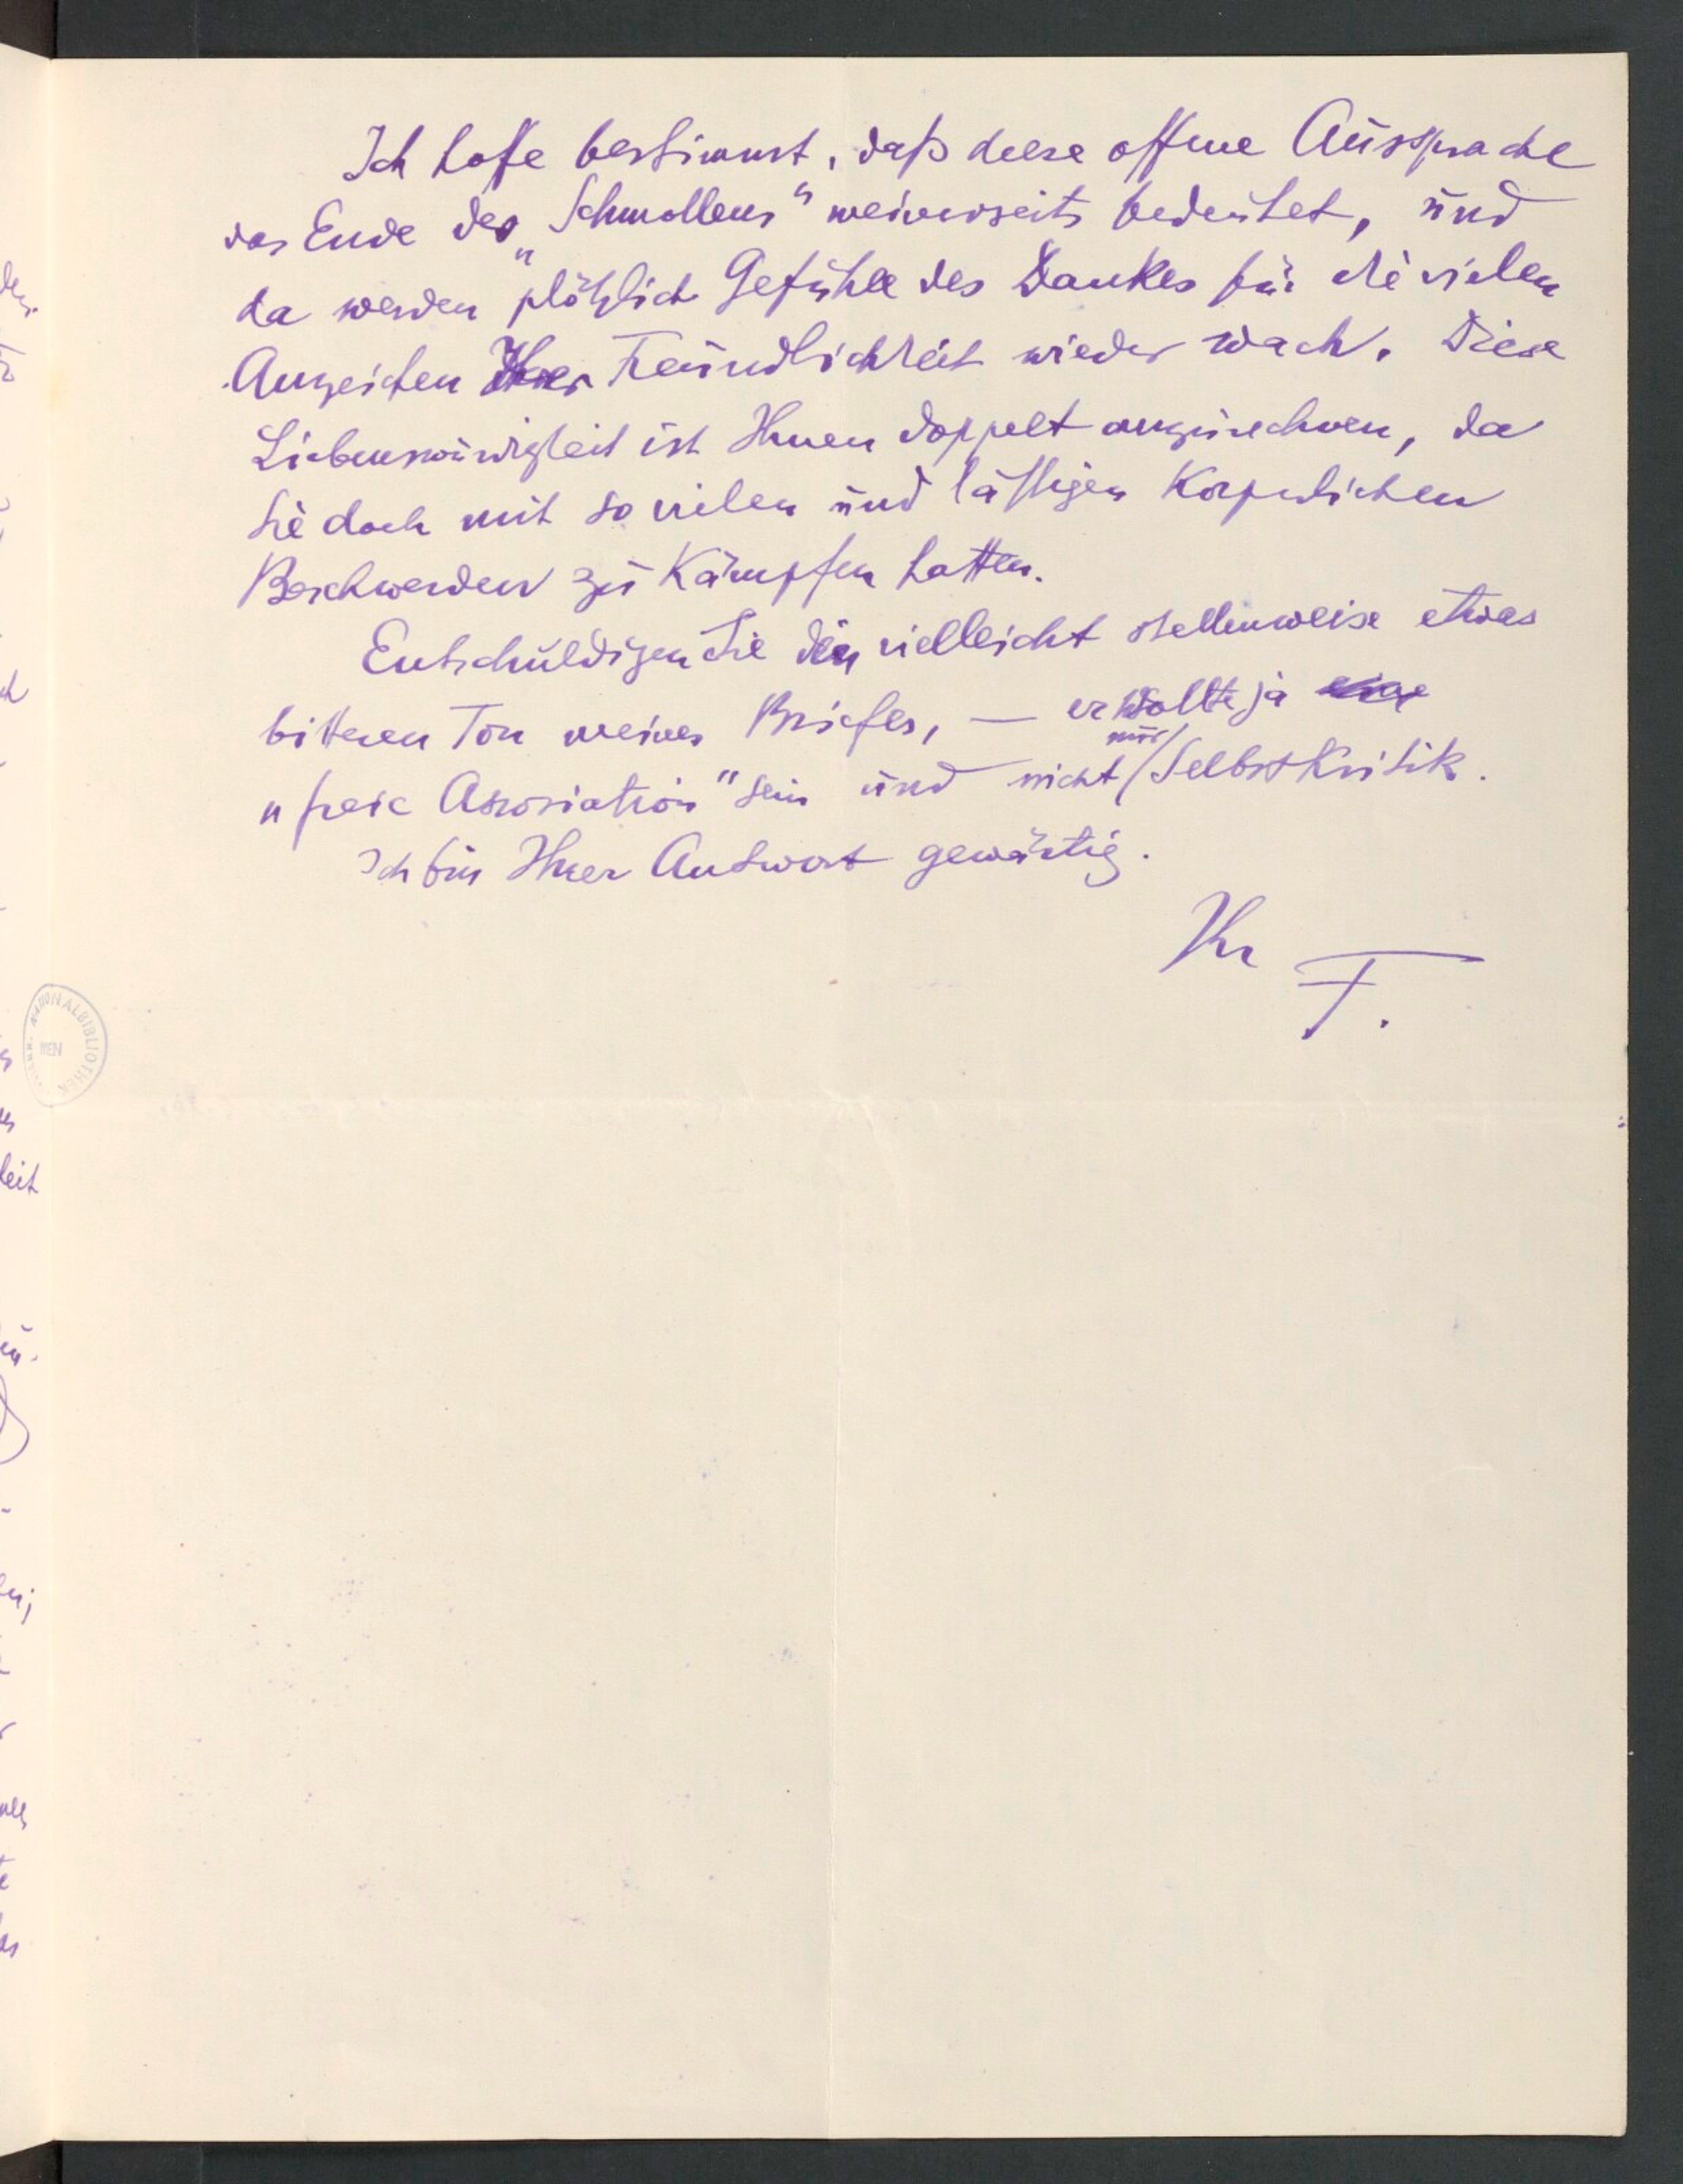 Ich hoffe bestimmt, daß diese offene Aussprache
das Ende des „Schmollens“ meinerseits bedeutet, und
da werden plötzlich Gefühle des Dankes für die vielen
Anzeichen Ihrer Freundlichkeit wieder wach. Diese
Liebenswürdigkeit ist Ihnen doppelt anzurechnen, da
Sie doch mit so vielen und lästigen körperlichen
Beschwerden zu kämpfen hatten.
Entschuldigen Sie den vielleicht stellenweise etwas
bitteren Ton meines Briefes, — er wollte ja
„freie Assoziation“ sein und nicht nur Selbstkritik.
Ich bin Ihrer Antwort gewärtig.
Ihr
F.
NATIONALBIBLIOTHEK
WIEN